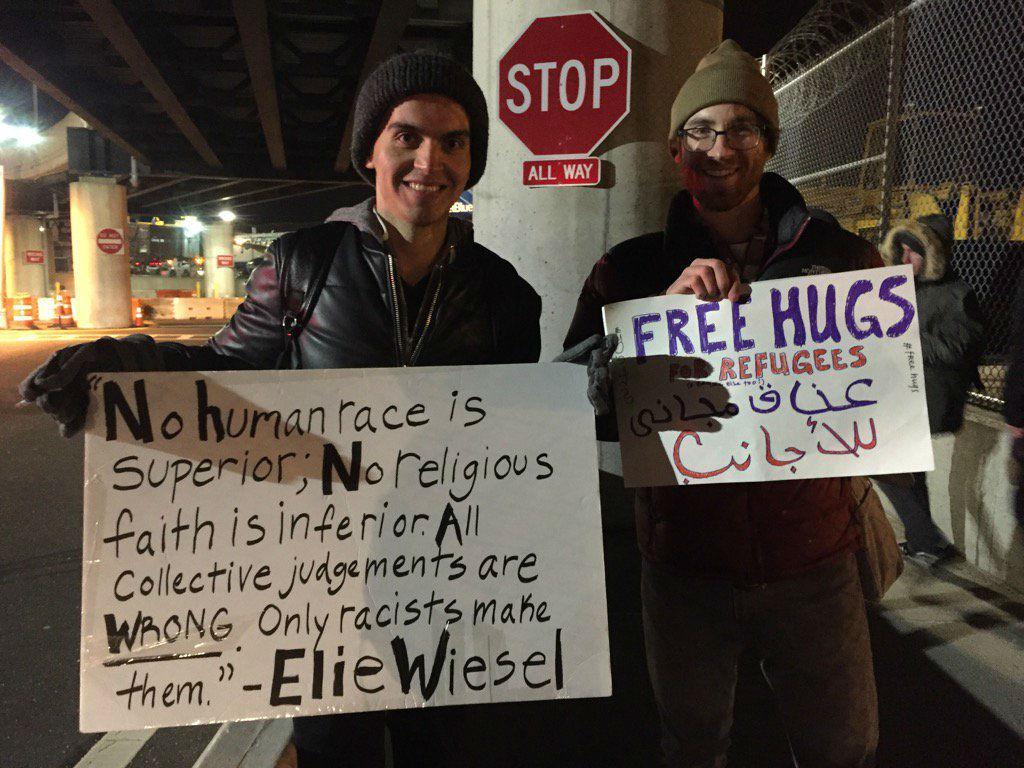 STOP
ALL WAY
"No human race is
superior; No religious
faith is inferior. All
Collective judgements are
WRONG. Only racists make
them." - Elie Wiesel
FREE HUGS
FOR REFUGEES
عناق مجاني
للأجانب
#free hugs
DO NOT
ENTER